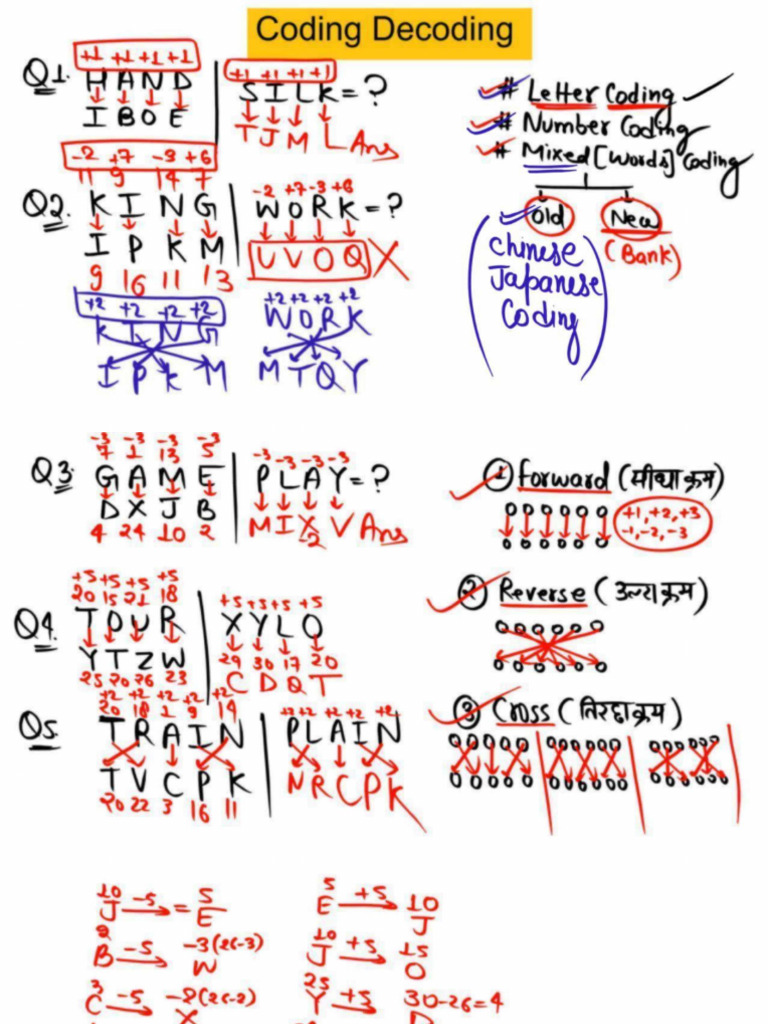 Coding Decoding
+1 +1 +1 +1
Q1. HAND
IBOE
+1 +1 +1 +1
SILK = ?
TJML Ans
# Letter Coding
# Number Coding
# Mixed [Words] Coding
Old New
(Bank)
Chinese
Japanese
Coding
-2 +7 -3 +6
11 9 14 7
Q2. KING
IPKM
9 16 11 13
-2 +7 -3 +6
WORK = ?
UVOQ
+2 +2 +2 +2
KING
IPKM
+2 +2 +2 +2
WORK
MTQY
-3 -3 -3 -3
7 1 13 5
Q3 GAME
DXJB
4 24 10 2
-3 -3 -3 -3
PLAY = ?
MIXV Ans
-2
① Forward (सीधा क्रम)
+1, +2, +3
-1, -2, -3
+5 +5 +5 +5
20 15 21 18
Q4. TOUR
YTZW
25 20 26 23
+5 +5 +5 +5
XYLO
29 30 17 20
CDQT
② Reverse (उल्टा क्रम)
+2 +2 +2 +2 +2
20 18 1 9 14
Q5 TRAIN
TVCPK
20 22 3 16 11
+2 +2 +2 +2 +2
PLAIN
NRCPK
③ Cross (तिरछा क्रम)
10 -5 5
J = E
2
B -5 -3(26-3)
W
3
C -5 -2(26-2)
X
5 +5 10
E J
10 +5 15
J O
25
Y +5 30-26=4
D